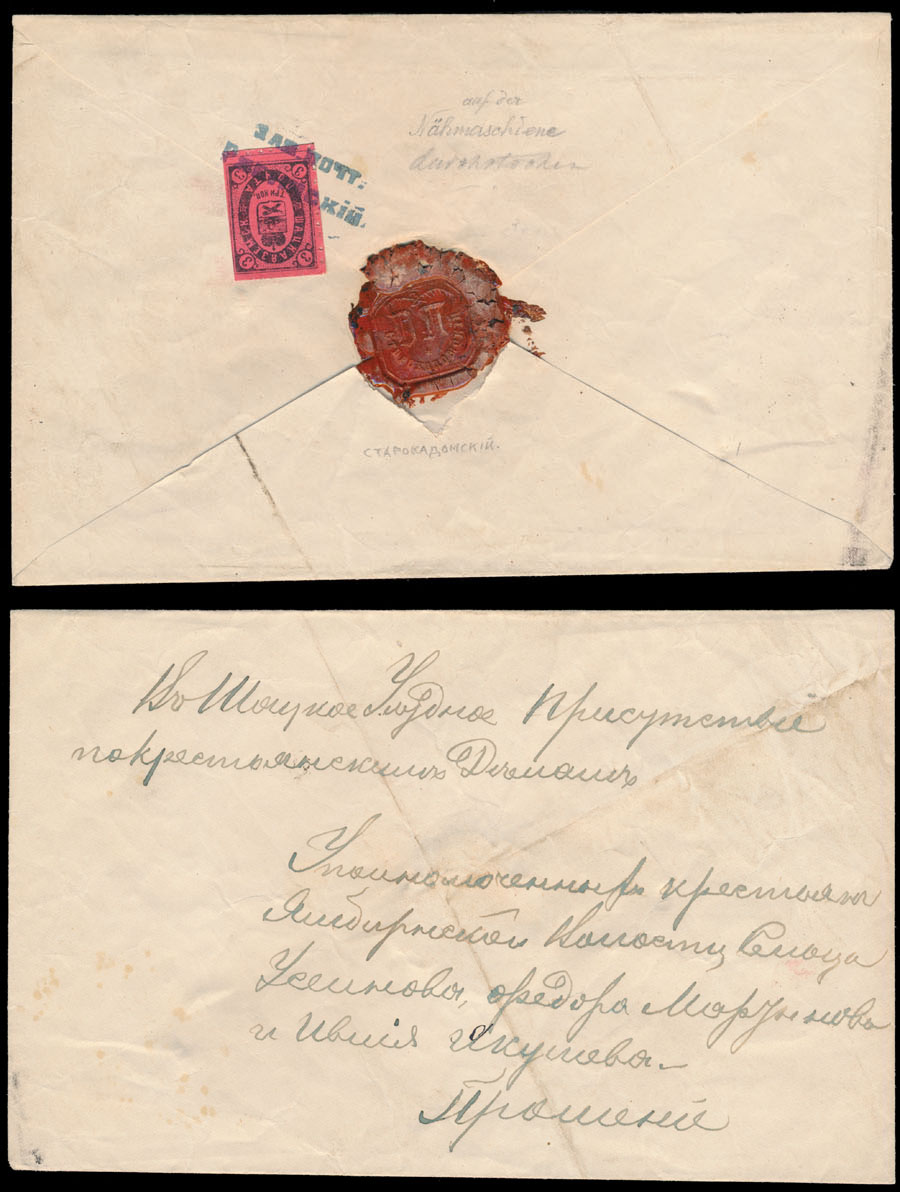 auf der
Nähmaschiene
durchstochen
ЗЕМ. ПОЧТ.
КІЙ.
ШАЦКАЯ ЗЕМСК. ПОЧТА
ТРИ КОП.
3 3 3 3
СТАРОКАДОМСКІЙ.
Въ Шацкое Уѣздное Присутствіе
по крестьянскимъ Дѣламъ
Уполномоченныхъ крестьянъ
Ямбирнской Волости, Сельца
Устинова, Федора Мартынова
и Якушева.
Прошеніе